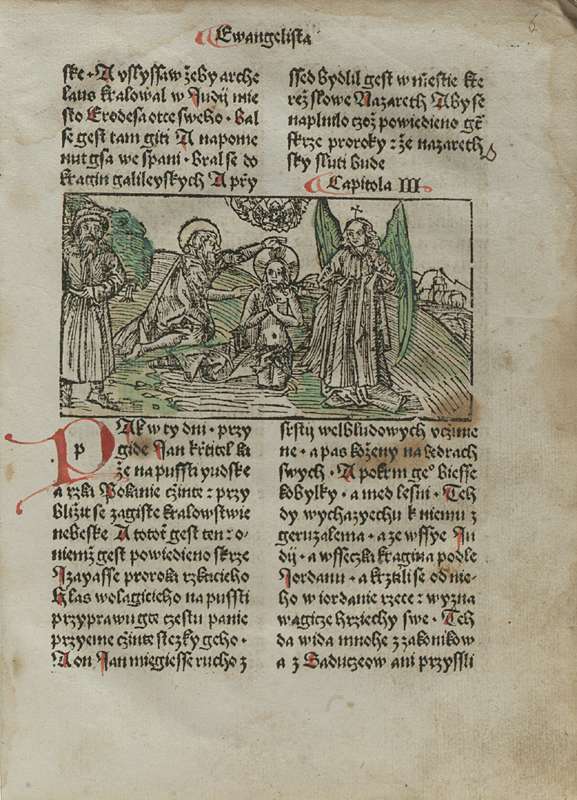 Ewangelista
6
ske · A vslyssaw žeby arche
laus kralowal w Judij mie
sto Erodesa otce sweho · bal
se gest tam giti A napome
nut gsa we spani · bral se do
kragin galileyskych A přy
ssed bydlil gest w miestie kte
rež slowe Nazareth Aby se
naplnilo czož powiedieno gt̄
skrze proroky : že nazareth
sky sluti bude
Capitola III
p
Ak w ty dni · przy
gide Jan křtitel ka
že na pussti yudske
a rzka Pokanie czinte : przy
bližit se zagiste kralowstwie
nebeske A totoť gest ten : o
niemž gest powiedieno skrze
Izayasse proroka rzkuciho
hlas wolagiciho na pussti
przyprawugte czestu panie
przyeme czinte stezky geho ·
A on Jan miegiesse rucho z
srstij welbludowych vczinie
ne · a pas koženy na bedrach
swych · A pokrm geo biesse
kobylky · a med lesni · Teh
dy wychazyechu k niemu z
geruzalema · a ze wssye Ju
dij · a wsseczka kragina podle
Jordanu · a krztili se od nie-
ho w iordanie rzece : wyzna
wagicze hrziechy swe · Teh
da wida mnohe z zakonikow
a z Saduczeow ani przyssli